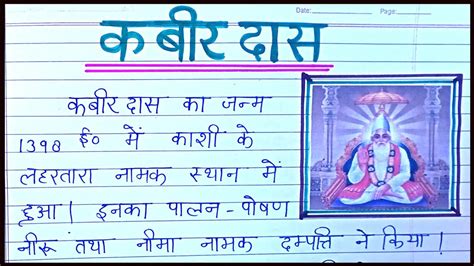 Date: Page:
कबीर दास
कबीर दास का जन्म
1398 ई० में काशी के
लहरतारा नामक स्थान में
हुआ। इनका पालन-पोषण
नीरू तथा नीमा नामक दम्पत्ति ने किया।